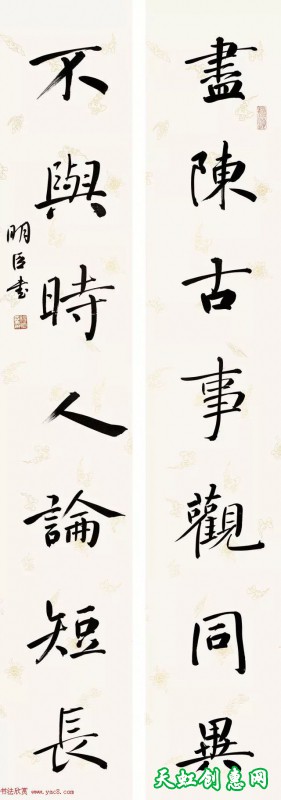 盡陳古事觀同異
不與時人論短長
明臣书
书法欣赏 www.yac8.com
天虹创惠网